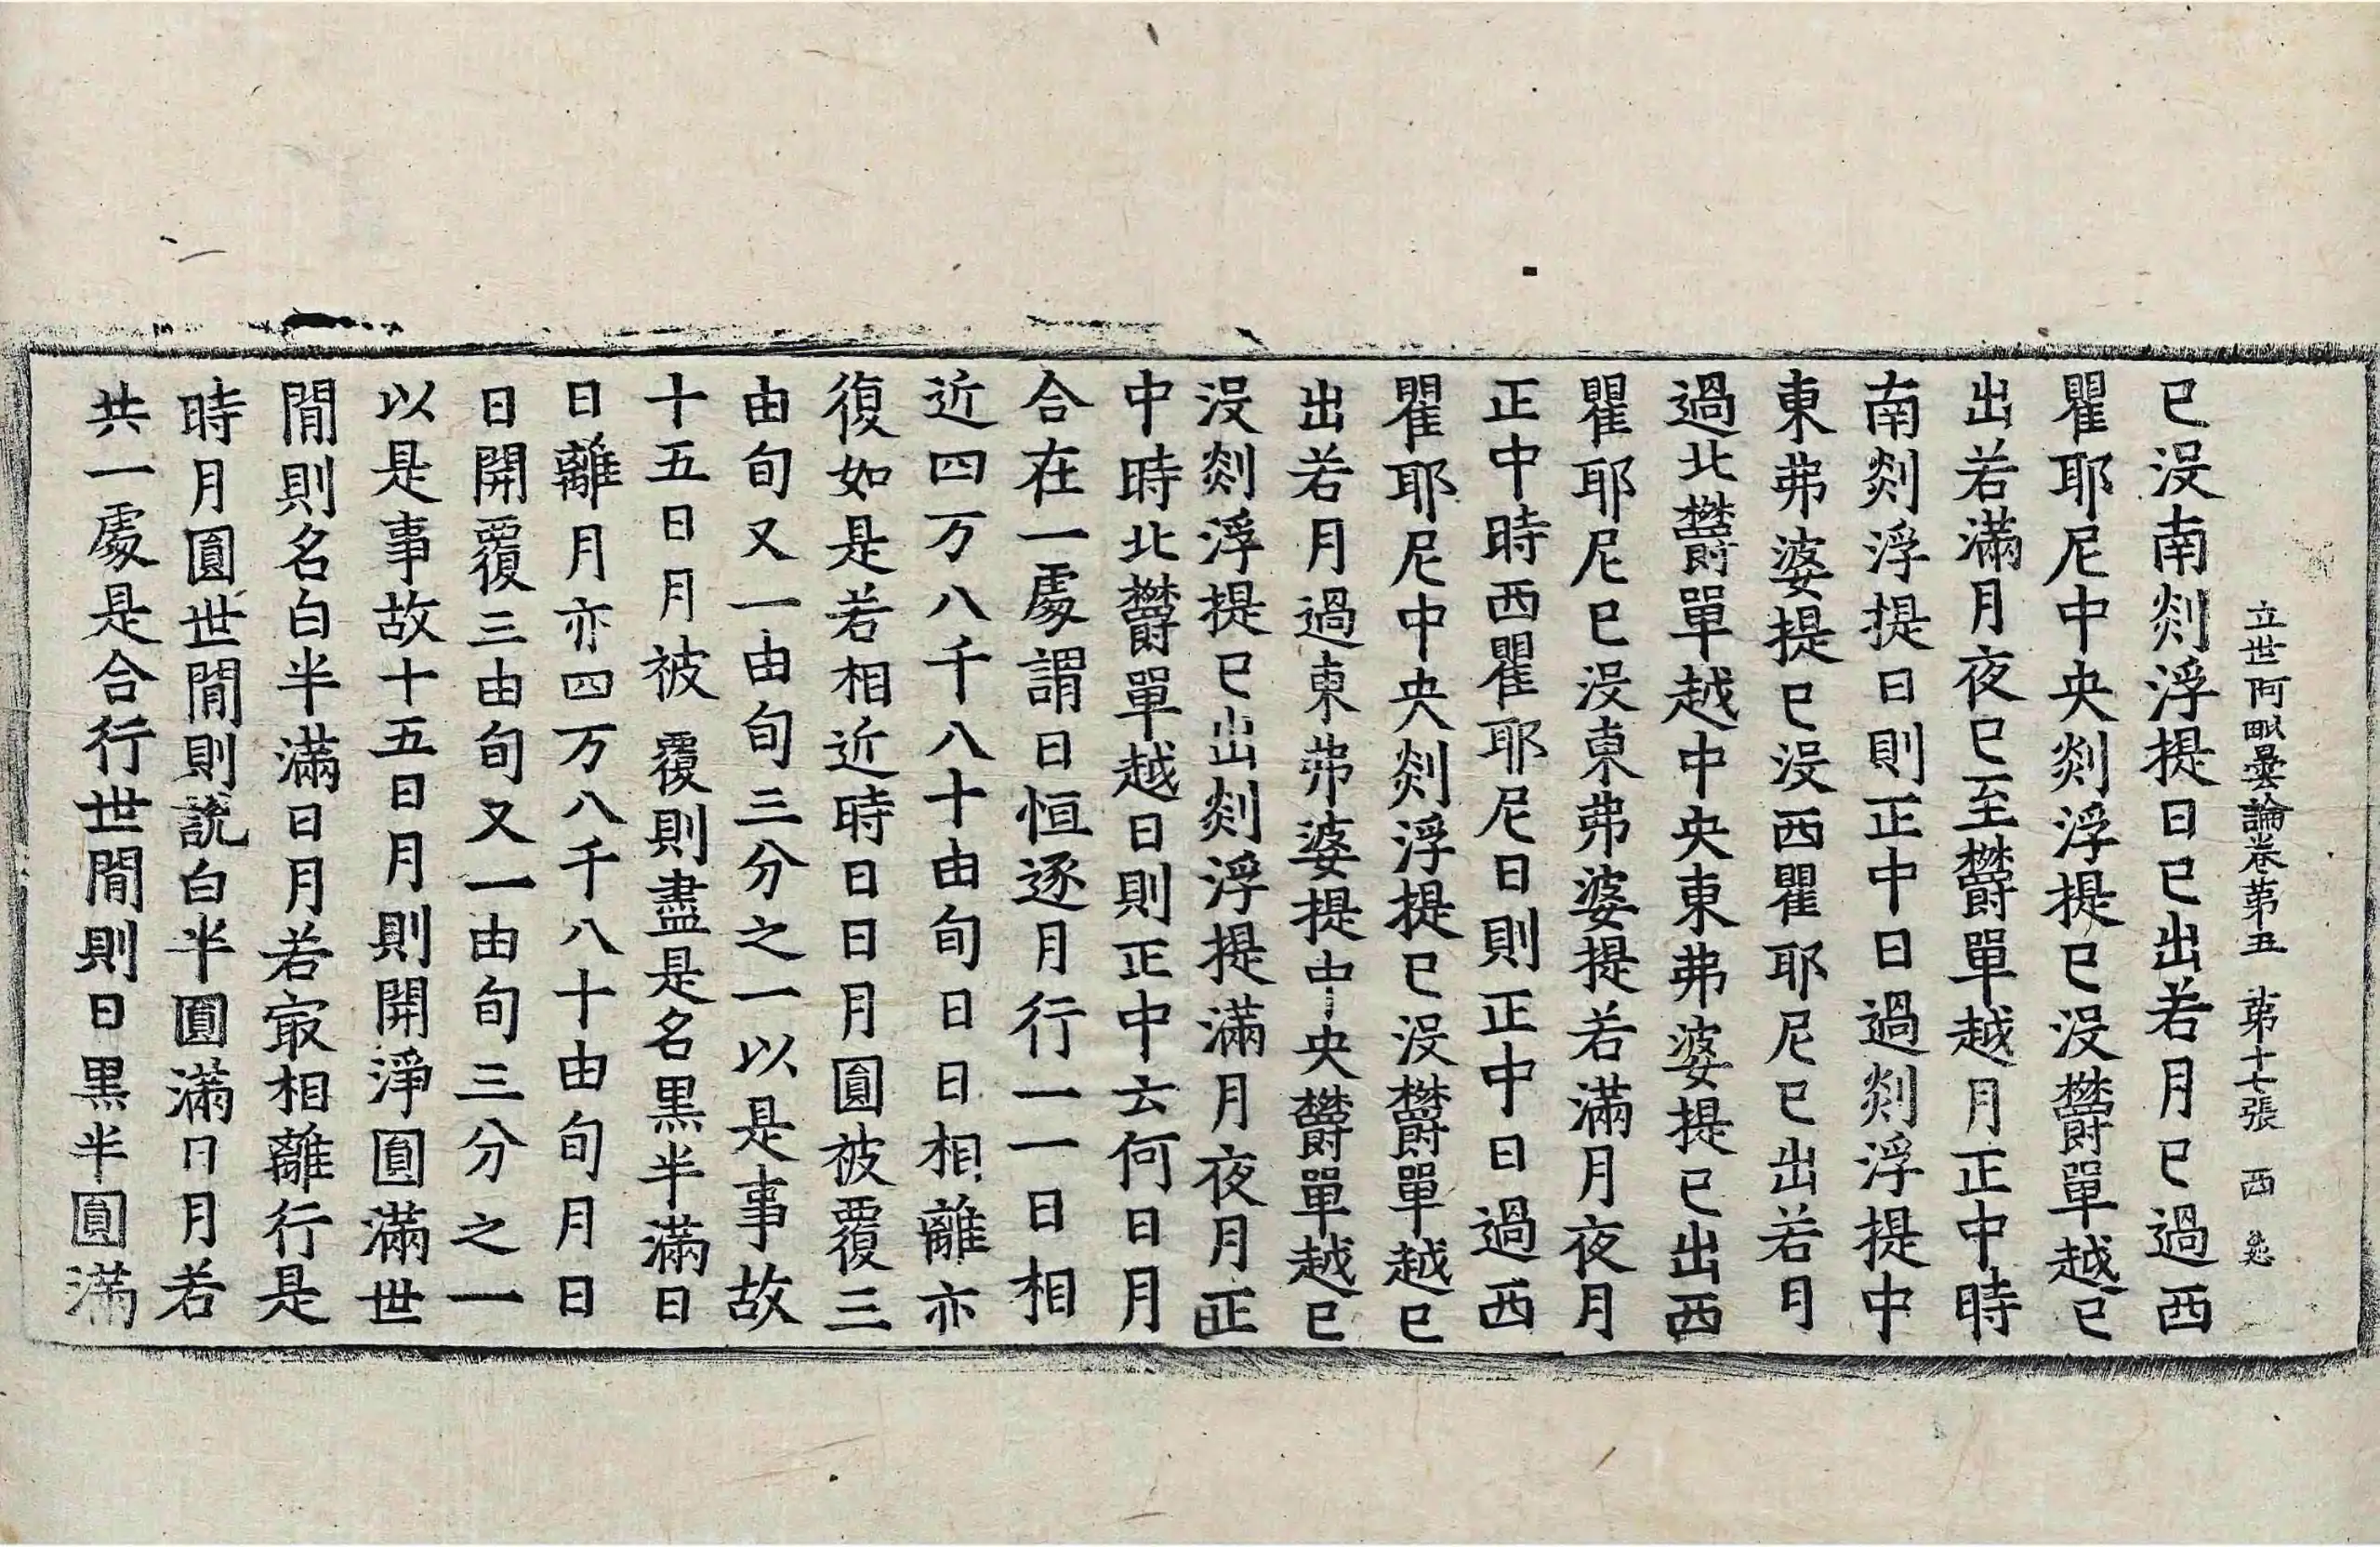 立世阿毗曇論卷第五 第十七張 西
已没南剡浮提日已出若月已過西
瞿耶尼中央剡浮提已没欝單越已
出若滿月夜已至欝單越月正中時
南剡浮提日則正中日過剡浮提中
東弗婆提已没西瞿耶尼已出若月
過北欝單越中央東弗婆提已出西
瞿耶尼已没東弗婆提若滿月夜月
正中時西瞿耶尼日則正中日過西
瞿耶尼中央剡浮提已没欝單越已
出若月過東弗婆提中央欝單越已
没剡浮提已出剡浮提滿月夜月正
中時北欝單越日則正中云何日月
合在一處謂日恒逐月行一一日相
近四万八千八十由旬日日相離亦
復如是若相近時日日月圓被覆三
由旬又一由旬三分之一以是事故
十五日月被覆則盡是名黒半滿日
日離月亦四万八千八十由旬月日
日開覆三由旬又一由旬三分之一
以是事故十五日月則開淨圓滿世
間則名白半滿日月若㝡相離行是
時月圓世間則說白半圓滿日月若
共一處是合行世間則日黒半圓滿